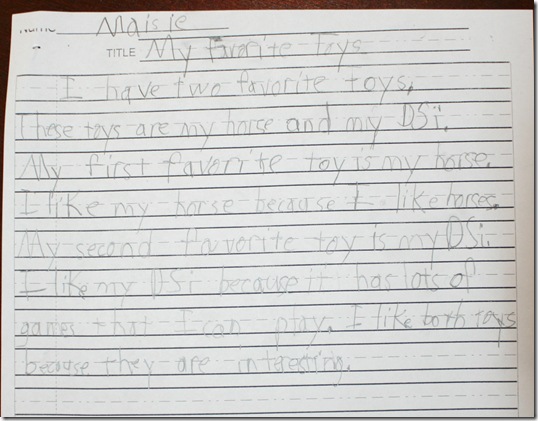 NAME Maisie
TITLE My favorite Toys
I have two favorite toys.
These toys are my horse and my DSi.
My first favorite toy is my horse.
I like my horse because I like horses.
My second favorite toy is my DSi.
I like my DSi because it has lots of
games that I can play. I like both toys
because they are interesting.